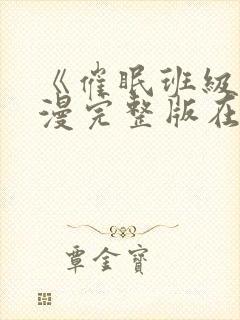 《催眠班級
漫完整版在
覃金寶